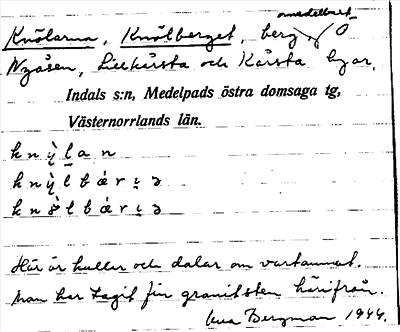 omedelbart
Knölarna, Knölberget, berg, O
Nyåsen, Lillkårsta och Kårsta byar,
Indals s:n, Medelpads östra domsaga tg,
Västernorrlands län.
knỳlan
knỳlbárı̣ə
knɵ̀lbárı̣ə
Här är kullar och dalar om vartannat.
Man har tagit fin granitsten härifrån.
Bergman 1944.